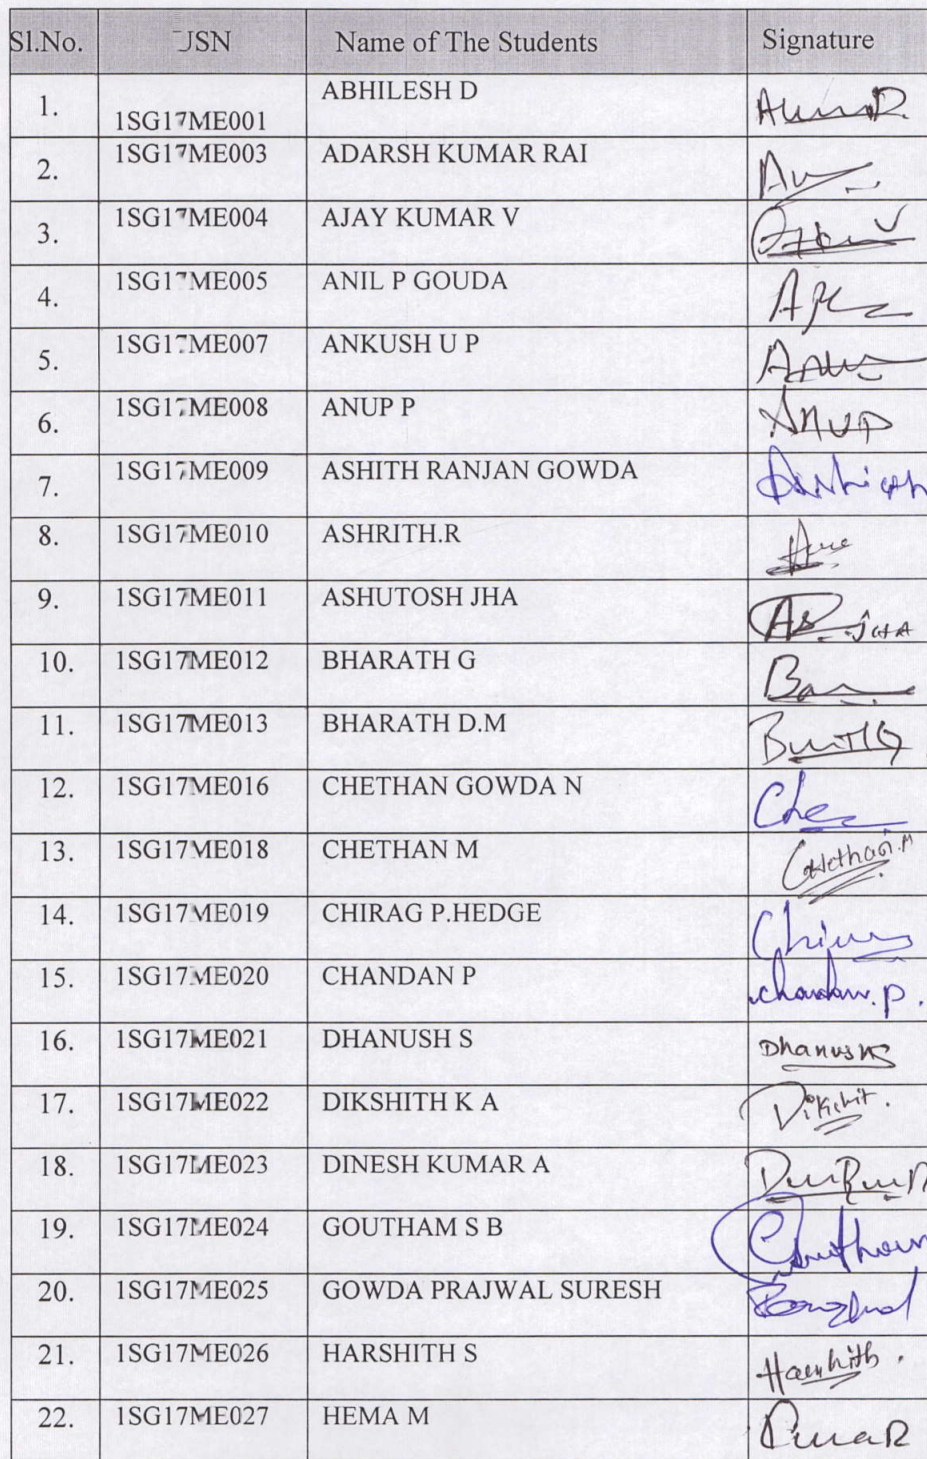 Sl.No. USN Name of The Students Signature
1. 1SG17ME001 ABHILESH D
2. 1SG17ME003 ADARSH KUMAR RAI
3. 1SG17ME004 AJAY KUMAR V
4. 1SG17ME005 ANIL P GOUDA
5. 1SG17ME007 ANKUSH U P
6. 1SG17ME008 ANUP P ANUP
7. 1SG17ME009 ASHITH RANJAN GOWDA
8. 1SG17ME010 ASHRITH.R
9. 1SG17ME011 ASHUTOSH JHA
10. 1SG17ME012 BHARATH G
11. 1SG17ME013 BHARATH D.M
12. 1SG17ME016 CHETHAN GOWDA N Che
13. 1SG17ME018 CHETHAN M Chethan.M
14. 1SG17ME019 CHIRAG P.HEDGE
15. 1SG17ME020 CHANDAN P Chandan.P.
16. 1SG17ME021 DHANUSH S Dhanush S
17. 1SG17ME022 DIKSHITH K A
18. 1SG17ME023 DINESH KUMAR A
19. 1SG17ME024 GOUTHAM S B Goutham
20. 1SG17ME025 GOWDA PRAJWAL SURESH
21. 1SG17ME026 HARSHITH S Harshith.
22. 1SG17ME027 HEMA M